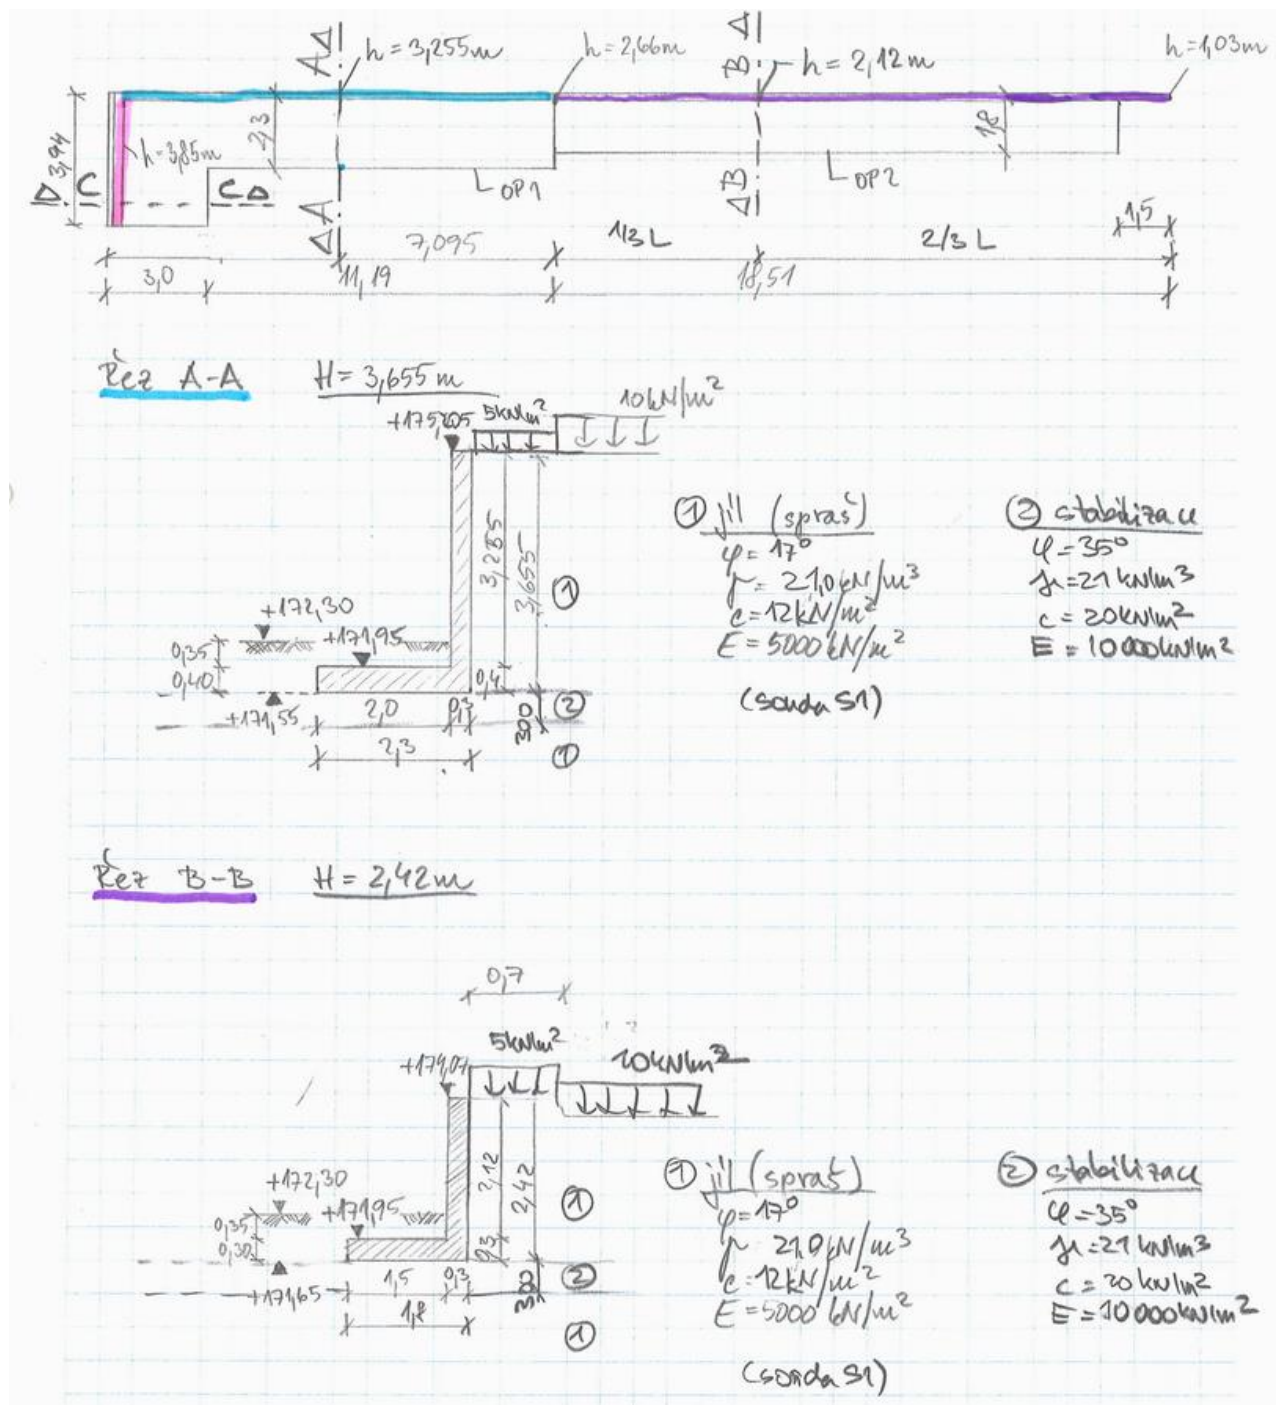 h = 3,255m
h = 2,66m
h = 2,12m
h = 1,03m
A
B
3,94
h = 3,85m
2,3
1,8
C
C
OP1
OP2
A
B
7,095
1/3 L
2/3 L
1,5
3,0
11,19
18,51
Řez A-A
H = 3,655m
10kN/m²
5kN/m²
3,655
1
+172,30
+171,95
0,35
0,40
0,4
+171,55
2,0
0,3
300
2
2,3
1
1 jíl (spraš)
φ = 17°
γ = 21,0kN/m³
c = 12kN/m²
E = 5000kN/m²
(sonda S1)
2 stabilizace
φ = 35°
γ = 21kN/m³
c = 20kN/m²
E = 10000kN/m²
Řez B-B
H = 2,42m
0,7
5kN/m²
+174,07
2,12
2,42
1
+172,30
+171,95
0,35
0,30
0,3
+171,65
1,5
0,3
300
2
1,8
1
1 jíl (spraš)
φ = 17°
γ 21,0kN/m³
c = 12kN/m²
E = 5000kN/m²
(sonda S1)
2 stabilizace
φ = 35°
γ = 21kN/m³
c = 20kN/m²
E = 10000kN/m²